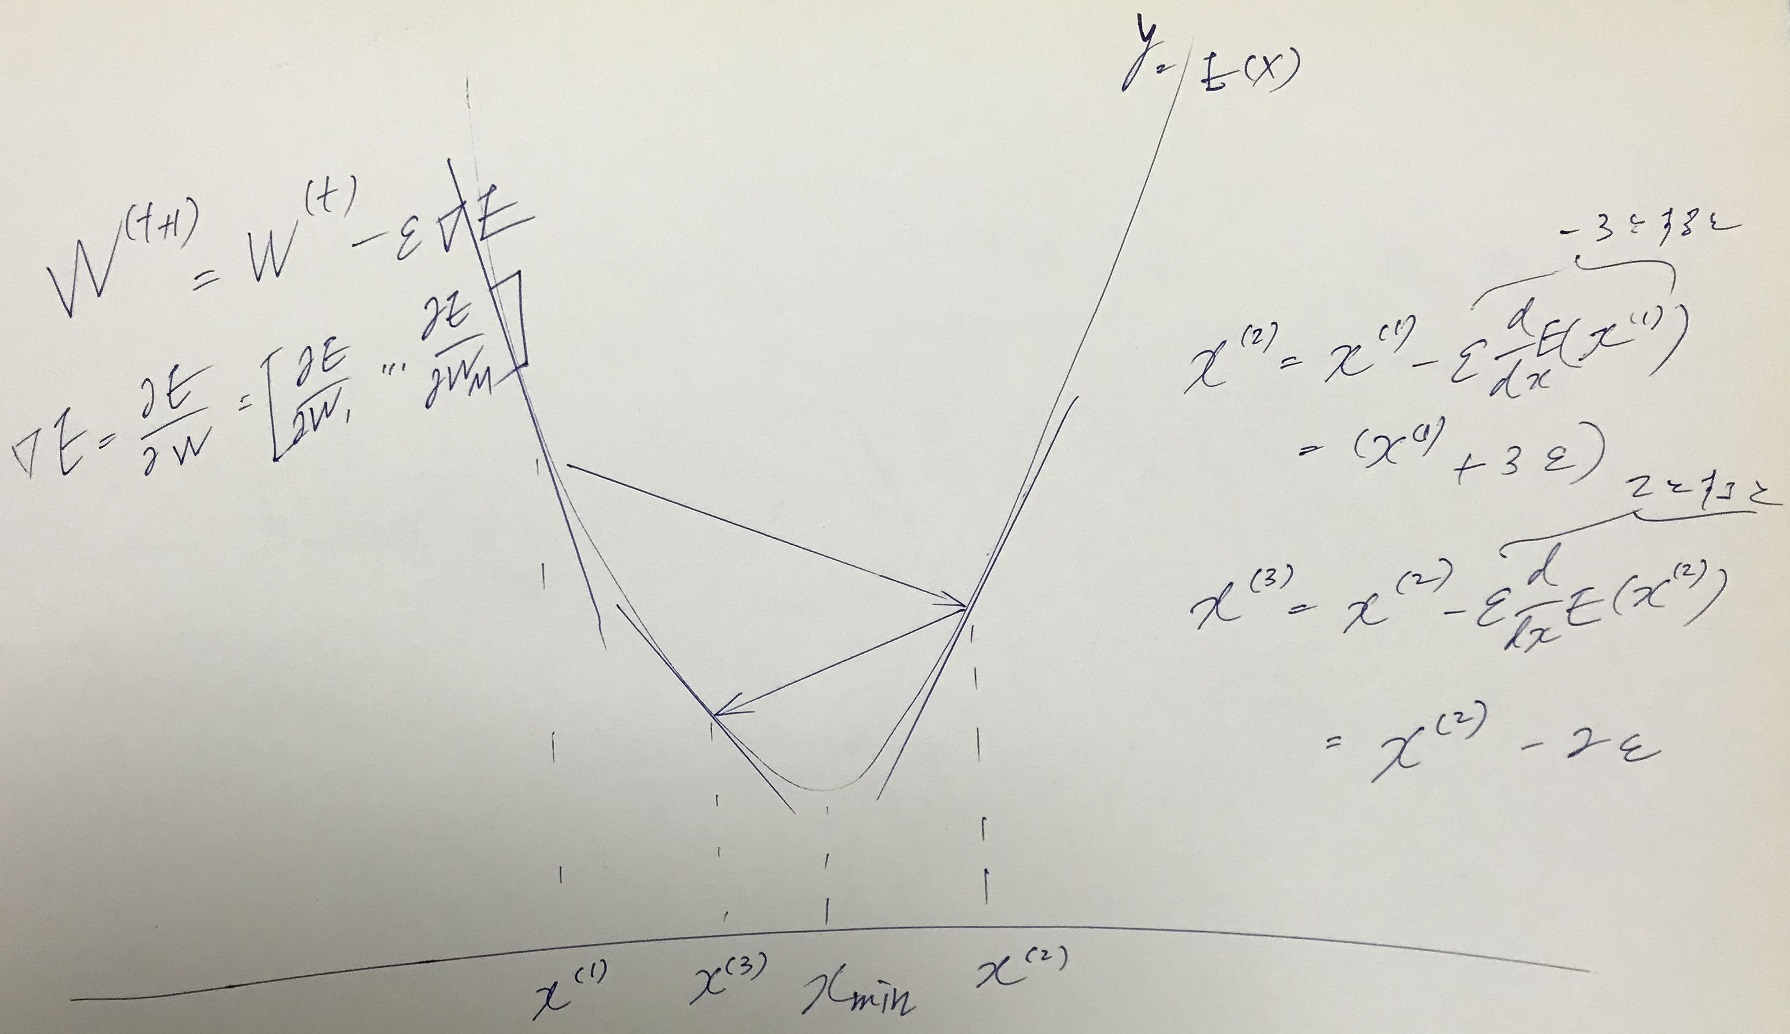 y = E(x)
W^(t+1) = W^(t) - ε∇E
∇E = ∂E/∂W = [∂E/∂W₁ ... ∂E/∂W_M]
-3とする
x^(2) = x^(1) - ε d/dx E(x^(1))
= (x^(1) + 3ε)
2とする
x^(3) = x^(2) - ε d/dx E(x^(2))
= x^(2) - 2ε
x^(1) x^(3) x min x^(2)